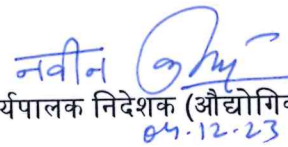 नवीन
र्यपालक निदेशक (औद्योगिक
04.12.23